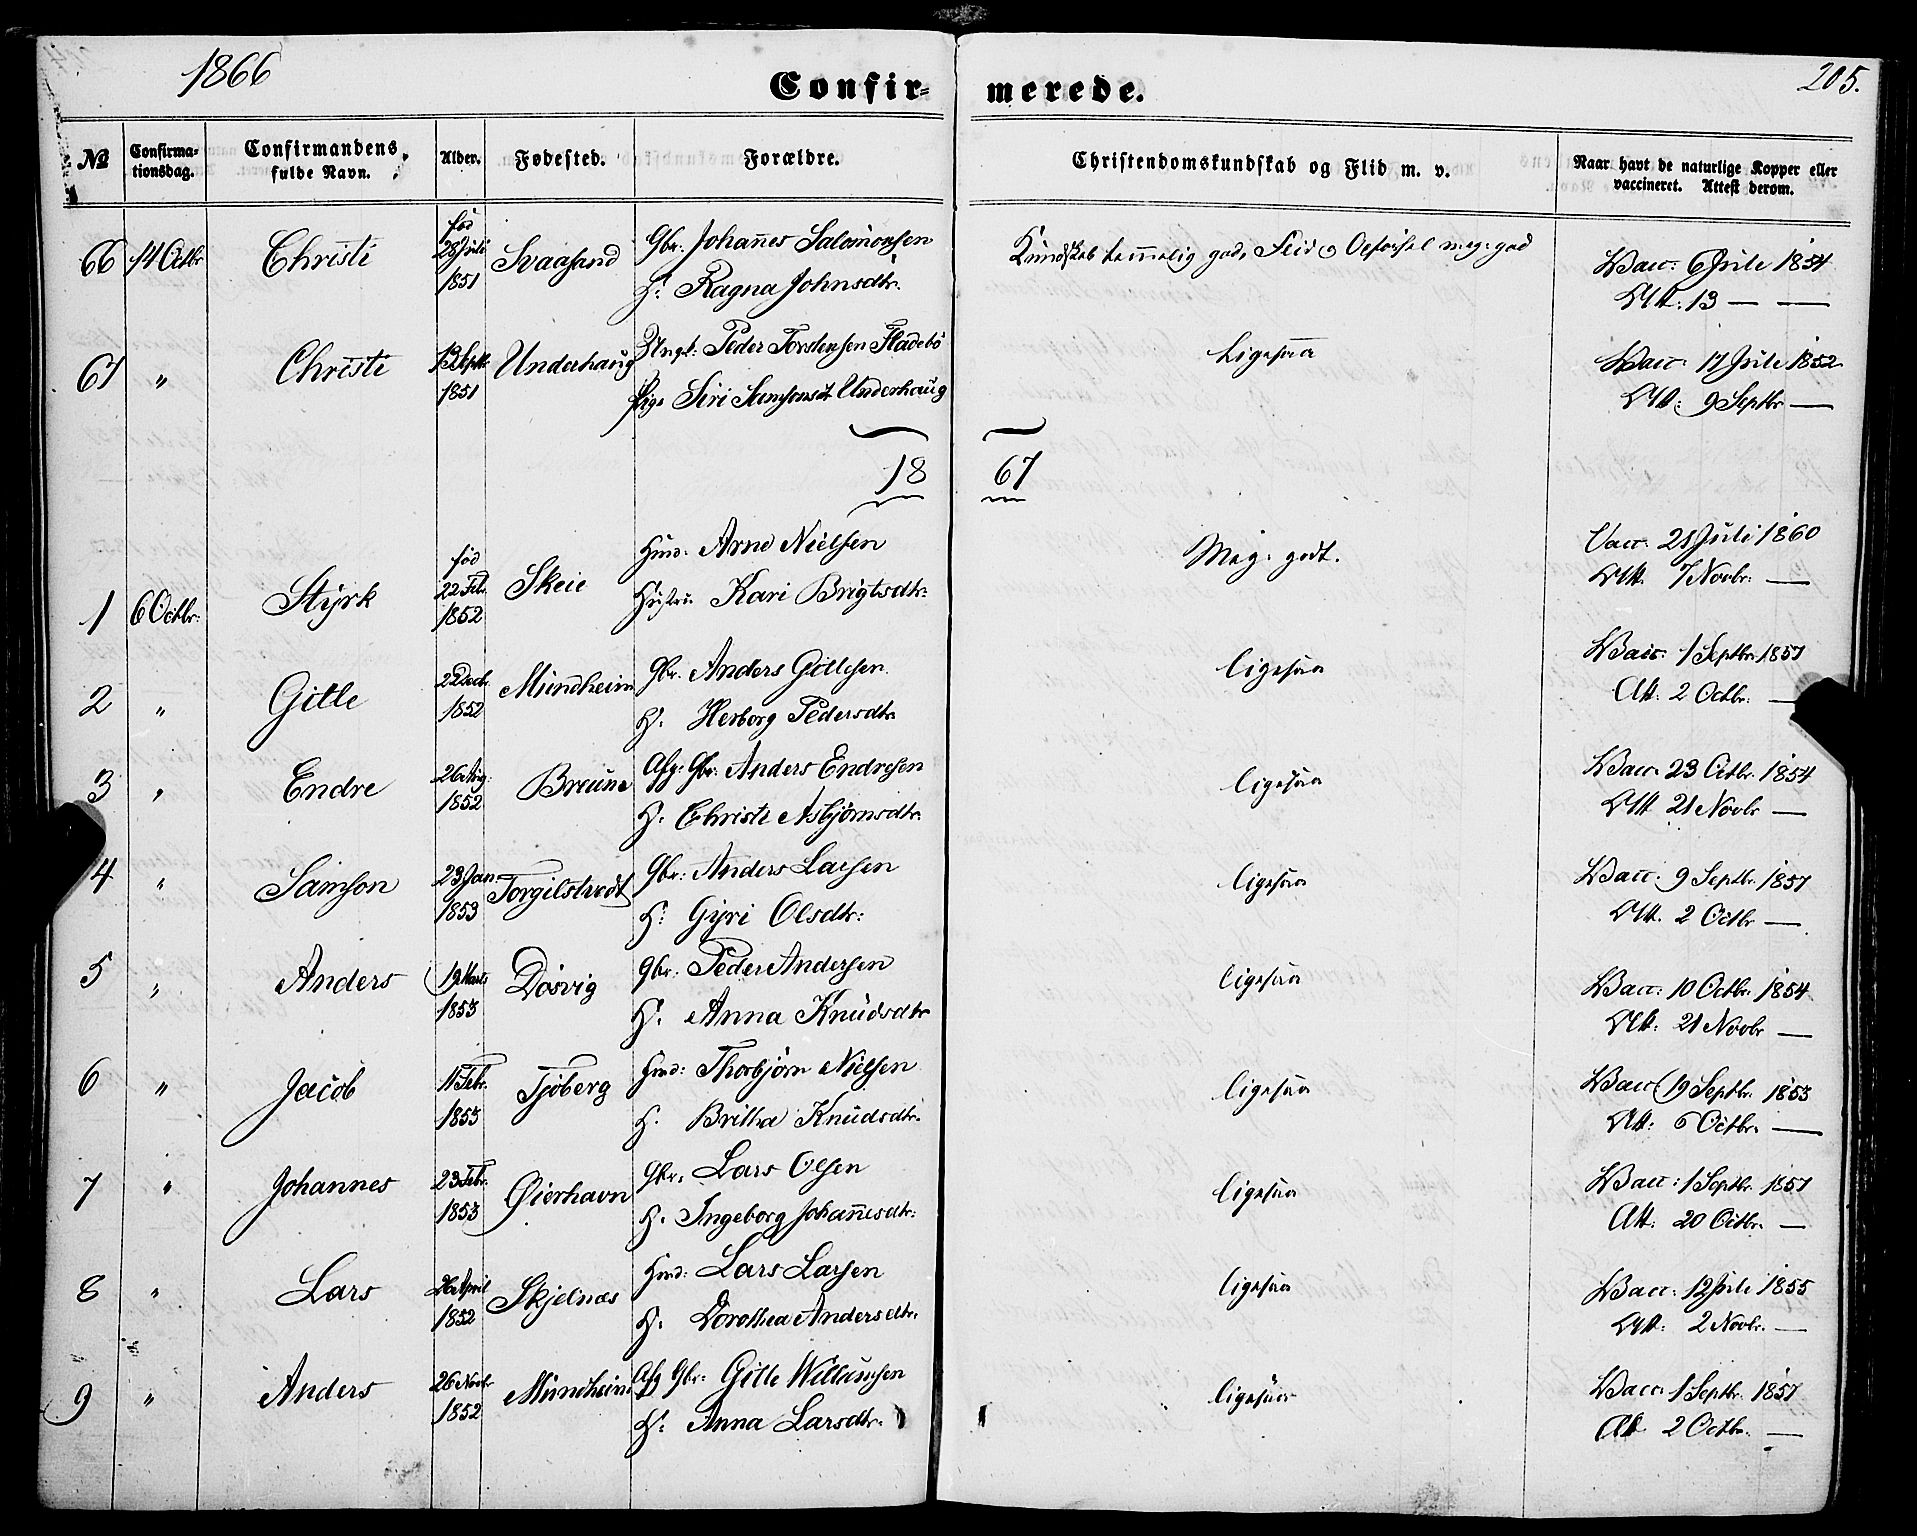 1866
Confirmerede.
205.
№ Confirmationsdag. Confirmandens fulde Navn. Alder. Fødested. Forældre. Christendomskundskab og Flid m. v. Naar havt de naturlige Kopper eller vaccineret. Attest derom.
66 14 Octbr Christi fød 28 Juli 1851 Svaasand Gbr. Johannes Salomonsen Kundskab temmelig god, Flid o Opførsel meg: god Vacc: 6 Juli 1854
H: Ragna Johnsdtr. Att. 13 — —
67 " Christi 13 Septbr 1851 Underhaug Ungk: Peder Torstensen Fladebö Ligesaa Vacc 17 Juli 1852
Pige Siri Samsonsdt Underhaug Att: 9 Septbr —
18 67
1 6 Octbr: Styrk fød 22 Feb. 1852 Skeie Huusm: Arne Nielsen Meg: godt. Vacc: 21 Juli 1860
Hustru Kari Brigtsdtr: Att. 7 Novbr: —
2 " Gitle 2 Decb. 1852 Mundheim Gbr. Anders Gitlesen ligesaa Vacc: 1 Septbr. 1857
H. Herborg Pedersdtr Att: 2 Octbr: —
3 " Endre 26 Aug: 1852 Breune Afg: Gbr: Anders Endresen ligesaa Vacc: 23 Octbr. 1854
H. Christi Asbjørnsdtr. Att 21 Novbr —
4 " Samson 23 Jan 1853 Torgilstvedt Gbr: Anders Larsen ligesaa Vacc: 9 Septbr. 1857
H: Gyri Olsdtr: Att. 2 Octbr —
5 " Anders 19 Marts 1853 Døsvig Gbr: Peder Andersen ligesaa Vacc: 10 Octbr: 1854
H. Anna Knudsdtr Att: 21 Novbr —
6 " Jacob 11 Febr. 1853 Tjöberg Hmd: Thorbjörn Nielsen ligesaa Vacc 19 Septbr. 1853
H. Britha Knudsdtr. Att: 6 Octbr. —
7 " Johannes 23 Febr. 1853 Øierhavn Gbr. Lars Olsen ligesaa Vacc: 1 Septbr. 1857
H. Ingeborg Johannesdtr: Att: 20 Octbr. —
8 " Lars 26 April 1852 Skjelnæs Hmd: Lars Larsen ligesaa Vacc: 12 Juli 1855
H. Dorothea Andersdtr. Att: 2 Novbr. —
9 " Anders 26 Novbr 1852 Mundheim Afg Gbr: Gitle Willumsen ligesaa Vacc: 1 Septbr. 1857
H: Anna Larsdtr. Att 2 Octbr. —